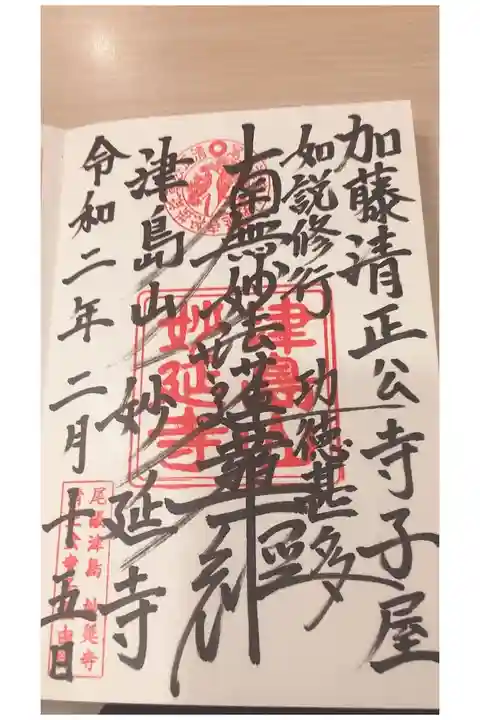 加藤清正公寺子屋
如説修行 功徳甚多
南無妙法蓮華経
津島山 妙延寺
令和二年二月十五日
津島山
妙延寺
尾張津島 妙延寺